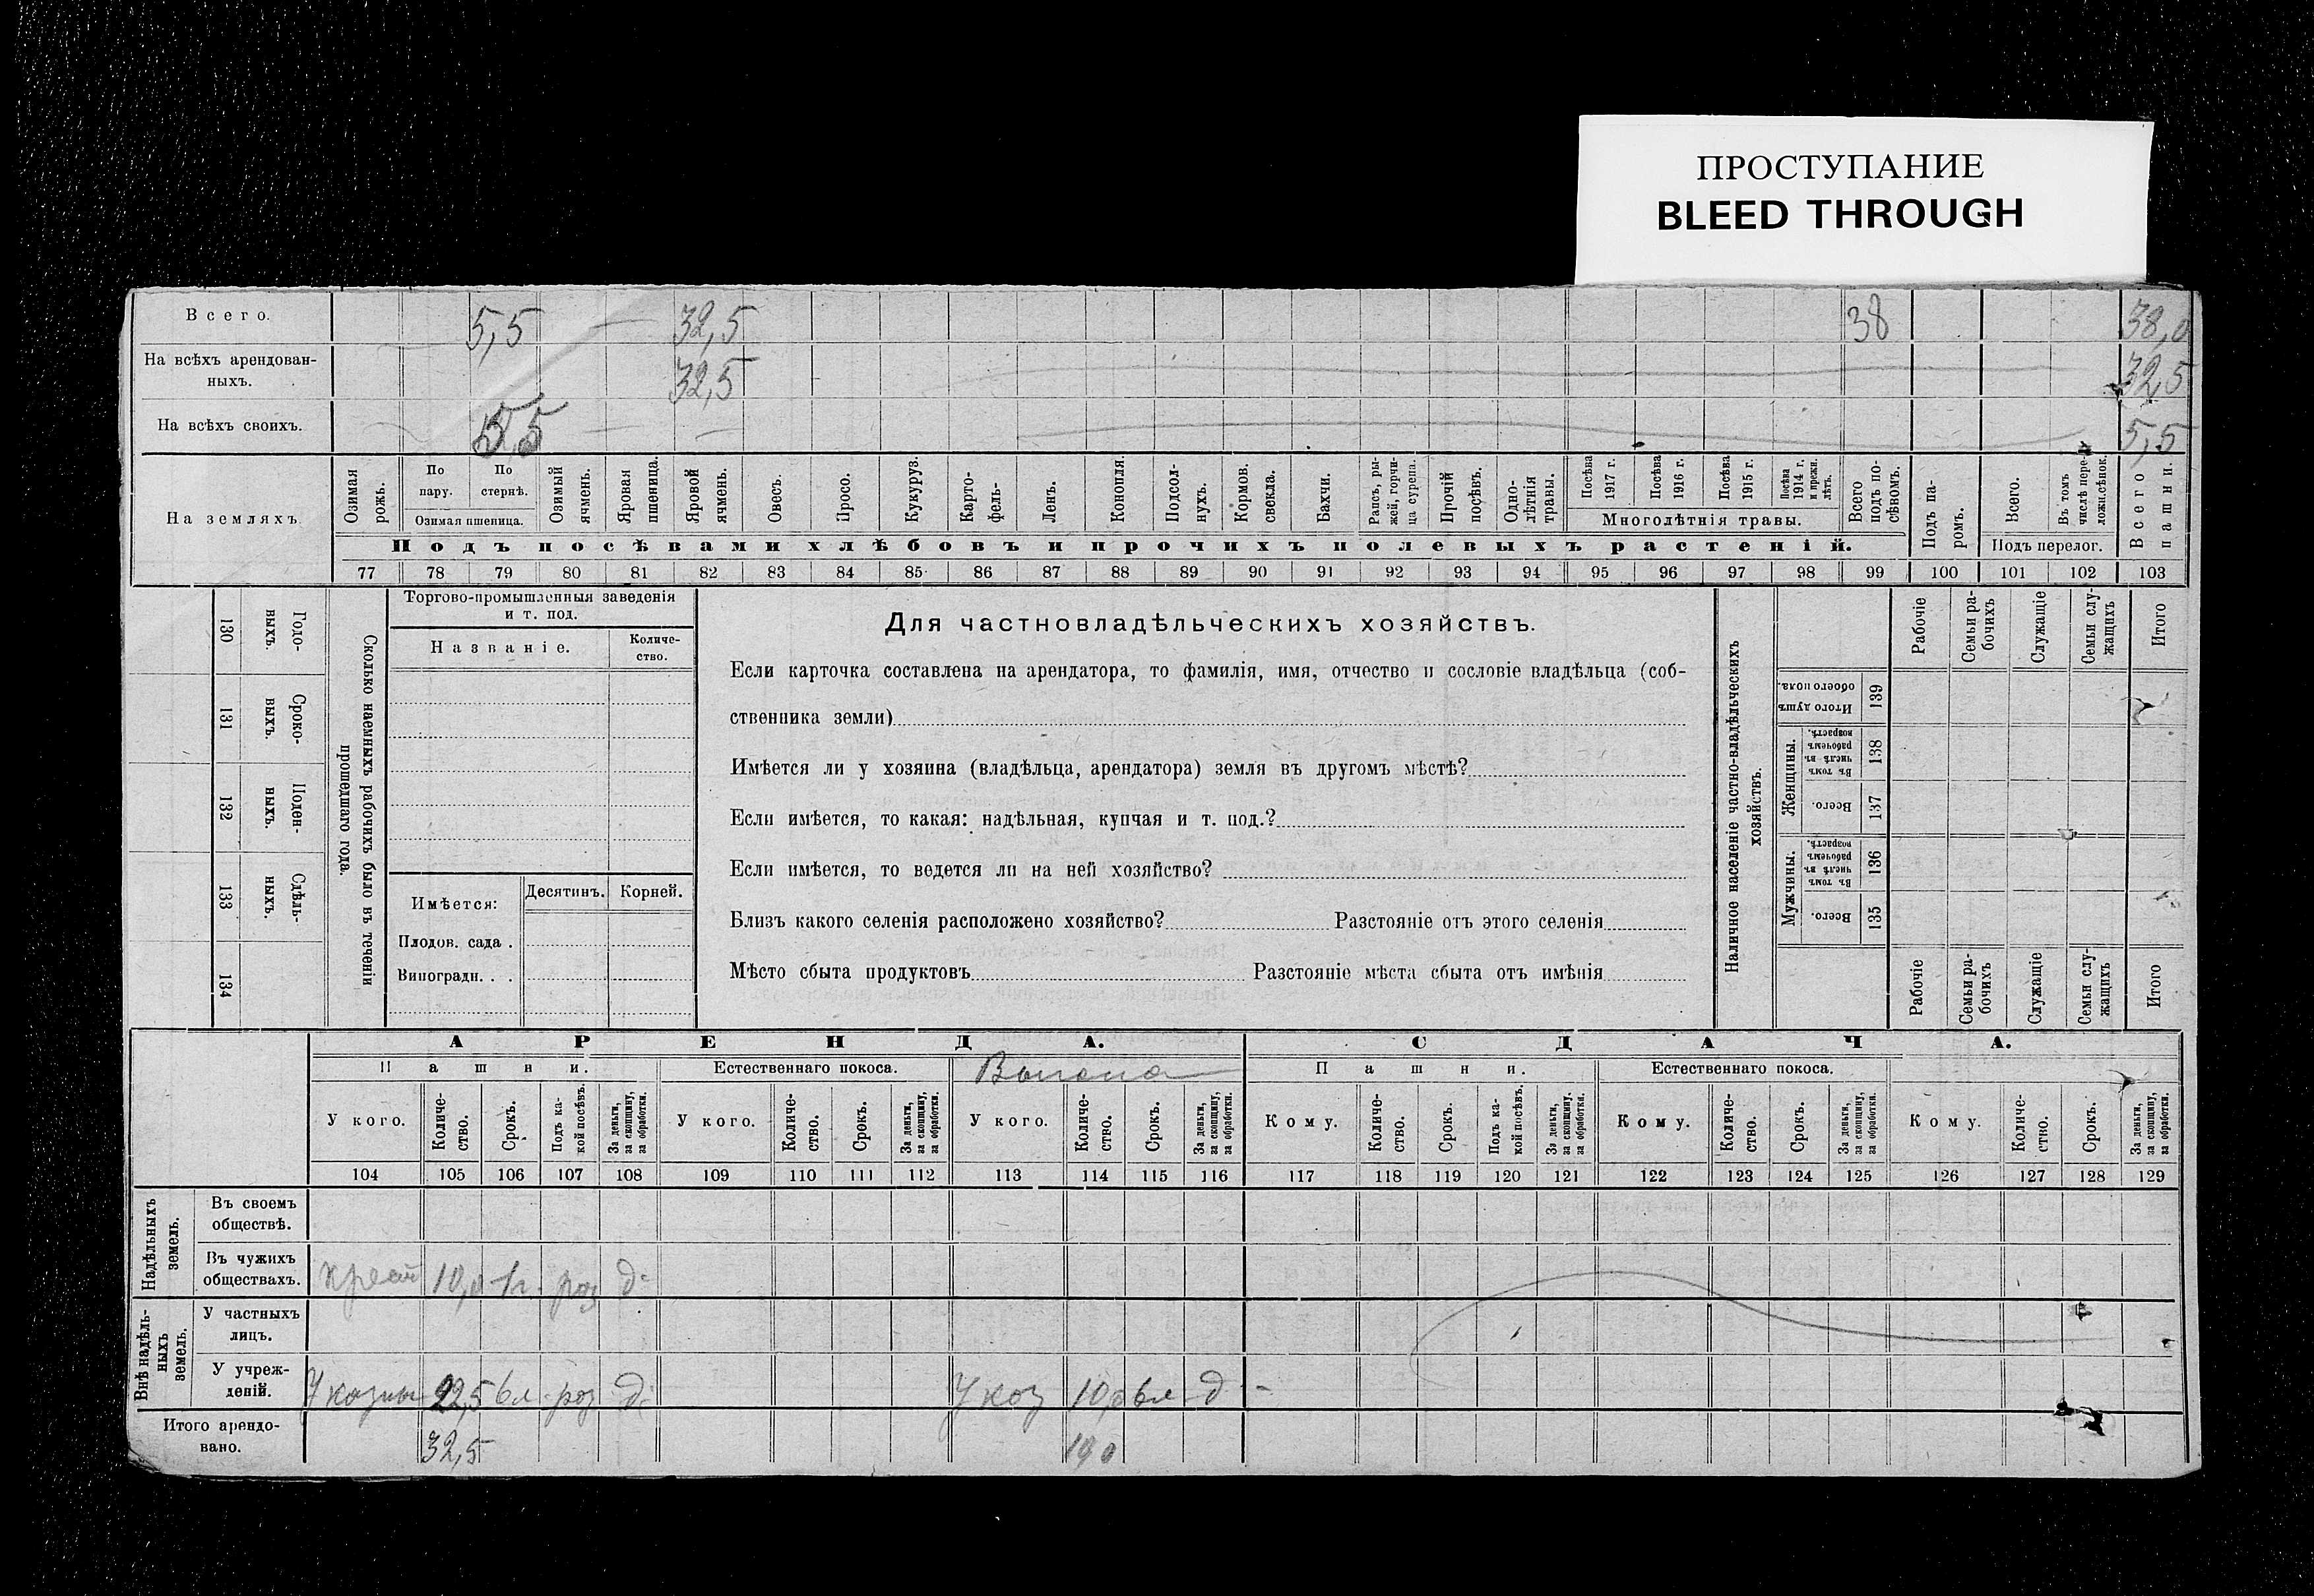 ПРОСТУПАНИЕ
BLEED THROUGH
Всего. 5,5 32,5 38 38,0
На всѣхъ арендован-
ныхъ. 32,5 32,5
На всѣхъ своихъ. 5,5 5,5
На земляхъ
Озимая рожь.
По пару.
По стернѣ.
Озимая пшеница.
Озимый ячмень.
Яровая пшеница.
Яровой ячмень.
Овесъ.
Просо.
Кукуруз.
Карто-
фель-
Ленъ.
Конопля.
Подсол-
нухъ.
Кормов. свекла.
Бахчи.
Рапсъ, ры-
жей, горчи-
ца сурепа.
Прочій посѣвъ.
Одно-
лѣтнія травы.
Посѣва 1917 г.
Посѣва 1916 г.
Посѣва 1915 г.
Посѣва 1914 г. и прежн. лѣтъ.
Многолѣтнія травы.
Всего подъ по-
сѣвомъ.
Подъ па-
ромъ.
Всего.
Въ томъ числѣ пере-
ложн.сѣнок.
Подъ перелог.
Всего пашни.
Подъ посѣвами хлѣбовъ и прочихъ полевыхъ растеній.
77 78 79 80 81 82 83 84 85 86 87 88 89 90 91 92 93 94 95 96 97 98 99 100 101 102 103
130 Годо-
ныхъ.
131 Сроко-
выхъ.
132 Поден-
ныхъ.
133 Сдѣль-
ныхъ.
134
Сколько наемныхъ рабочихъ было въ теченіи
прошедшаго года.
Торгово-промышленныя заведенія
и т. под.
Названіе.
Количе-
ство.
Имѣется:
Десятинъ. Корней.
Плодов. сада .
Виноградн. . .
Для частновладѣльческихъ хозяйствъ.
Если карточка составлена на арендатора, то фамилія, имя, отчество и сословіе владѣльца (соб-
ственника земли)
Имѣется ли у хозяина (владѣльца, арендатора) земля въ другомъ мѣстѣ?
Если имѣется, то какая: надѣльная, купчая и т. под.?
Если имѣется, то ведется ли на ней хозяйство?
Близъ какого селенія расположено хозяйство? Разстояніе отъ этого селенія
Мѣсто сбыта продуктовъ Разстояніе мѣста сбыта отъ имѣнія
Наличное населеніе частно-владѣльческихъ
хозяйствъ.
Рабочіе
Семьи ра-
бочихъ
Служащіе
Семьи слу-
жащихъ
Итого
Итого душъ обоего пола. 139
Женщины.
Въ томъ числѣ въ рабочемъ возрастѣ. 138
Всего. 137
Мужчины.
Въ томъ числѣ въ рабочемъ возрастѣ. 136
Всего. 135
Рабочіе
Семьи ра-
бочихъ
Служащіе
Семьи слу-
жащихъ
Итого
АРЕНДА. СДАЧА.
Пашни. Естественнаго покоса. Выгона Пашни. Естественнаго покоса.
У кого.
Количе-
ство.
Срокъ.
Подъ ка-
кой посѣвъ.
За деньги,
за скопщину,
за обработки.
У кого.
Количе-
ство.
Срокъ.
За деньги,
за скопщину,
за обработки.
У кого.
Количе-
ство.
Срокъ.
За деньги,
за скопщину,
за обработки.
Кому.
Количе-
ство.
Срокъ.
Подъ ка-
кой посѣвъ.
За деньги,
за скопщину,
за обработки.
Кому.
Количе-
ство.
Срокъ.
За деньги,
за скопщину,
за обработки.
Кому.
Количе-
ство.
Срокъ.
За деньги,
за скопщину,
за обработки.
104 105 106 107 108 109 110 111 112 113 114 115 116 117 118 119 120 121 122 123 124 125 126 127 128 129
Надѣльныхъ
земель.
Въ своемъ
обществѣ.
Въ чужихъ
обществахъ. крест 10,0 1л. роз д-
Внѣ надѣль-
ныхъ
земель.
У частныхъ
лицъ.
У учреж-
деній. У казны 22,5 6л. роз д- У каз 10,0 6л д-
Итого арендо-
вано. 32,5 10 0